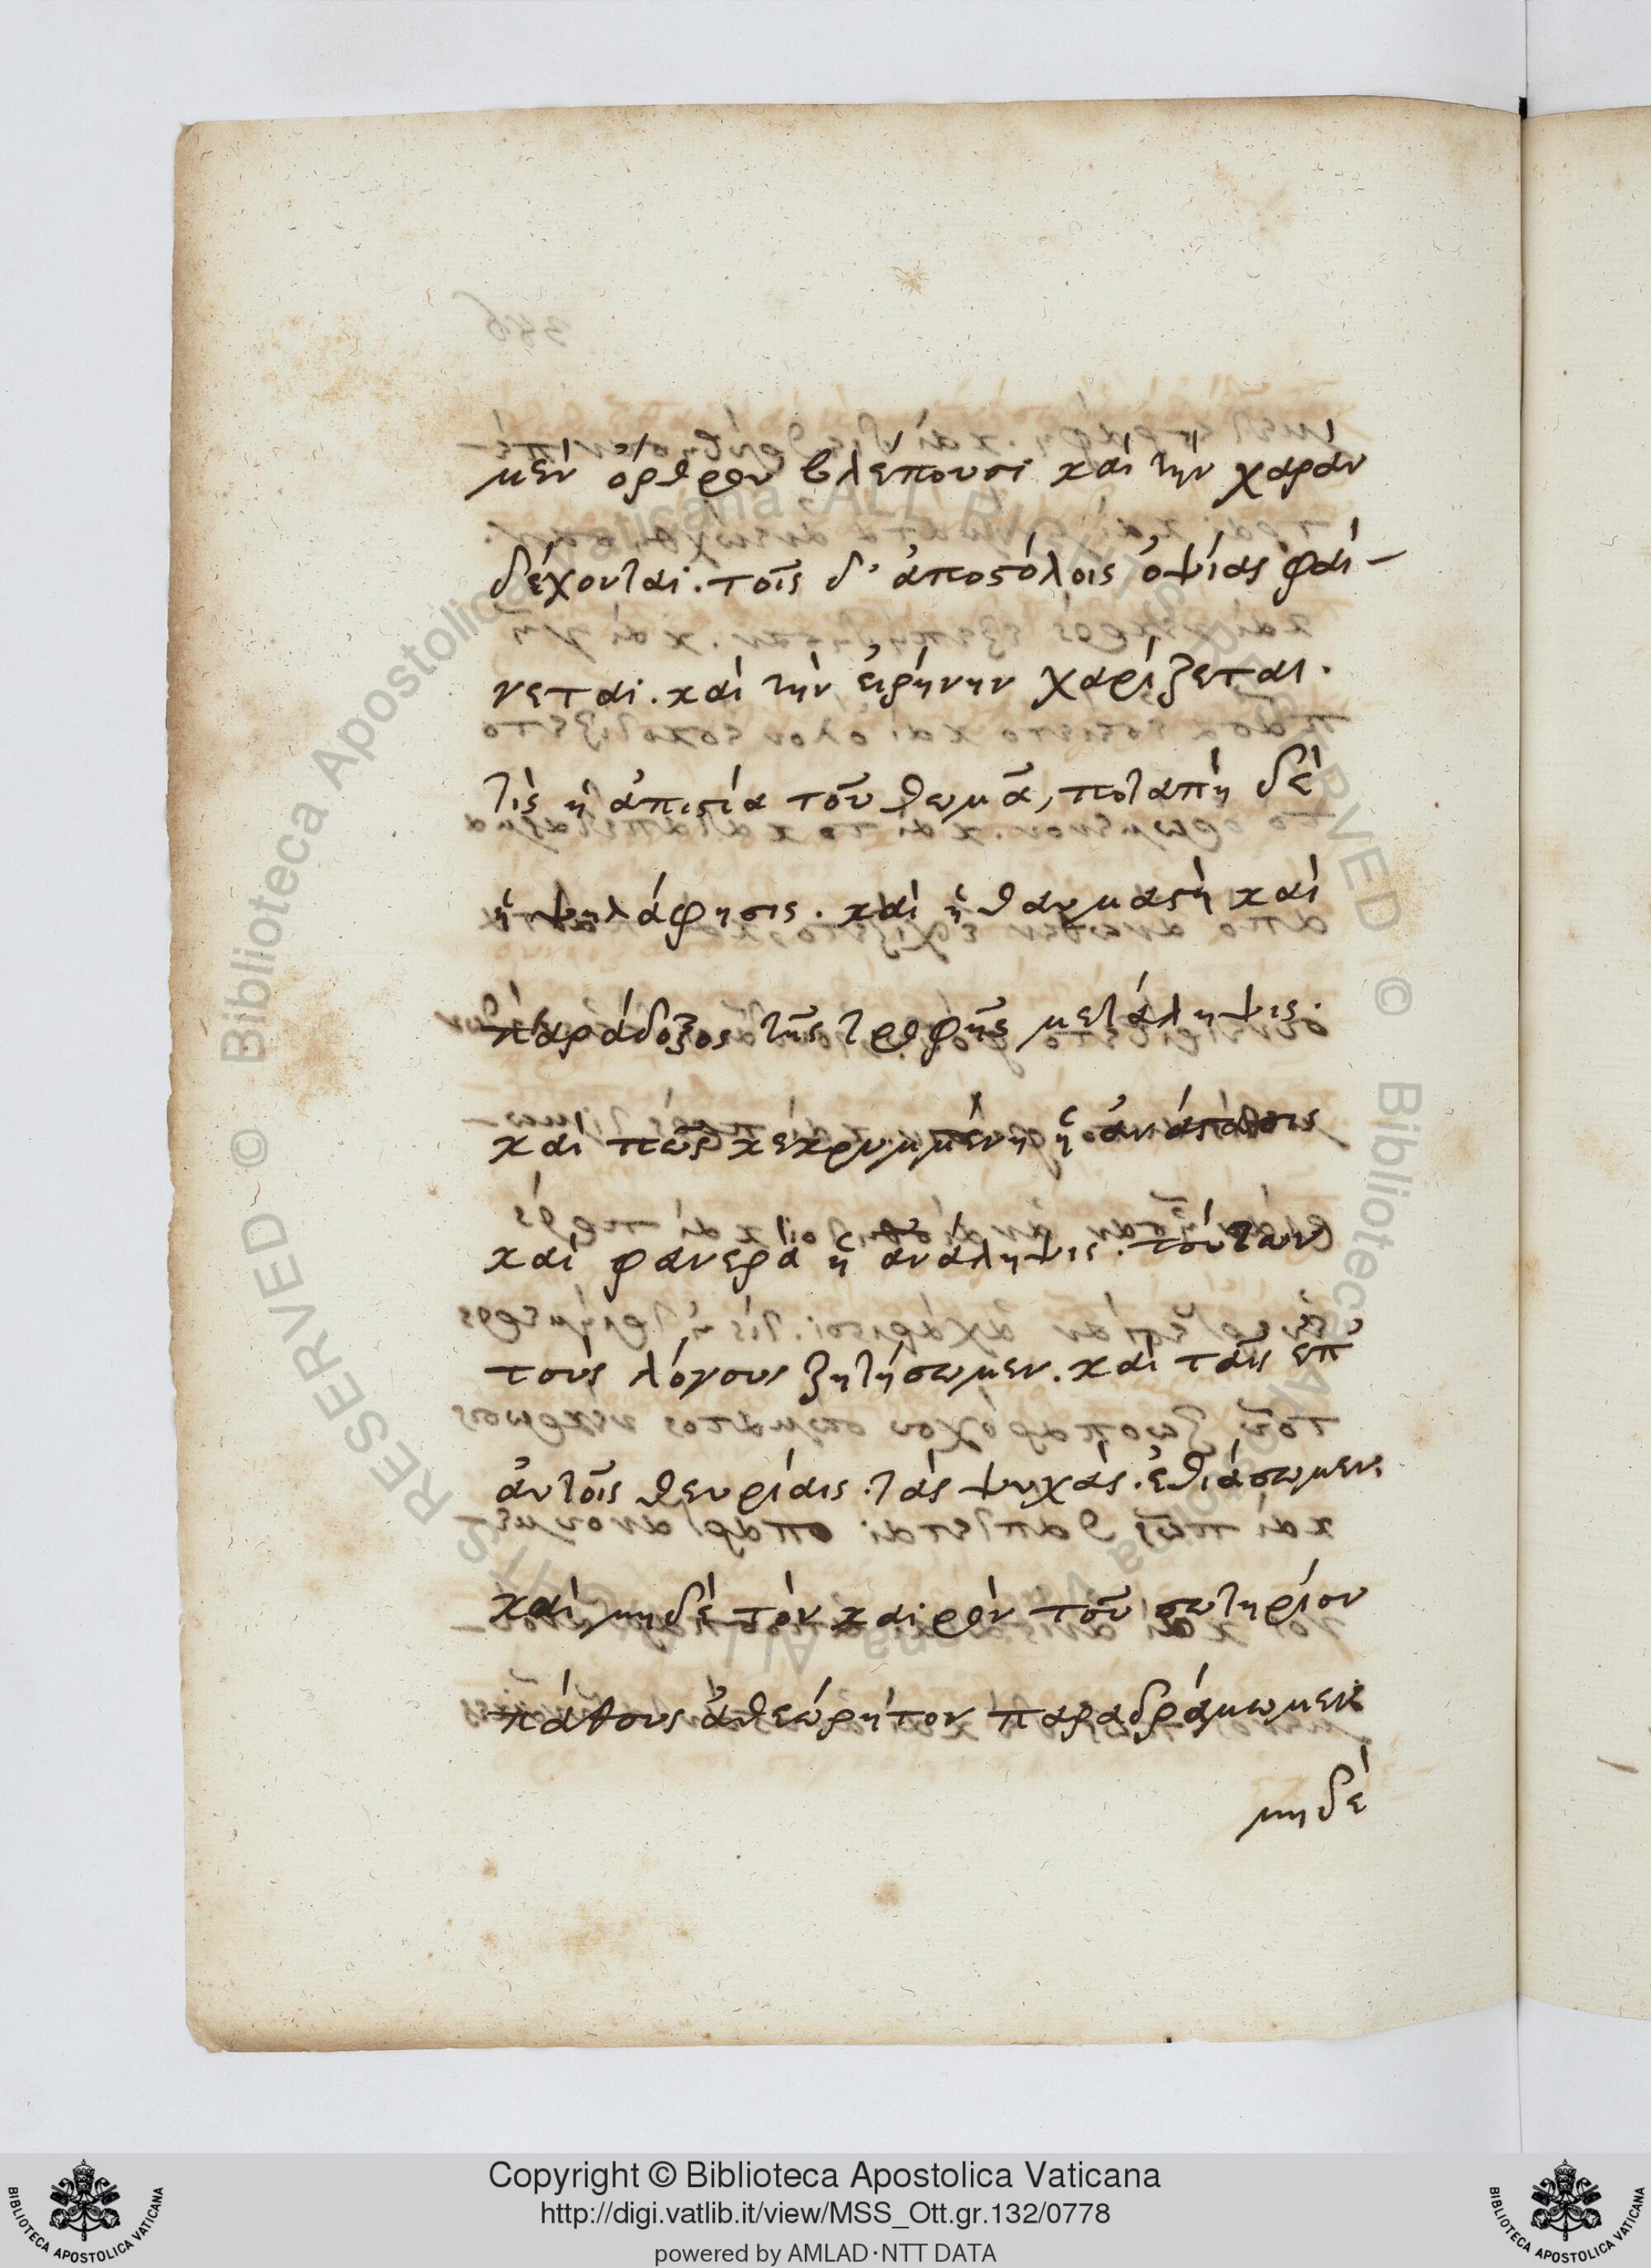 μὲν ὄρθρου βλέπουσι καὶ τὴν χαρὰν
δέχονται. τοῖς δ' ἀποστόλοις ὀψίας φαί-
νεται. καὶ τὴν εἰρήνην χαρίζεται.
τίς ἡ ἀπιστία τοῦ θωμᾶ, ποταπὴ δὲ
ἡ ψηλάφησις. καὶ ἡ θαυμαστὴ καὶ
παράδοξος τῆς τροφῆς μετάληψις.
καὶ πῶς κεκρυμμένη ἡ ἀνάστασις
καὶ φανερὰ ἡ ἀνάληψις. τούτων
τοὺς λόγους ζητήσωμεν. καὶ ταῖς ἐπ'
αὐτοῖς θεωρίαις τὰς ψυχὰς ἑστιάσωμεν.
καὶ μηδὲ τὸν καιρὸν τοῦ σωτηρίου
πάθους ἀθεώρητον παραδράμωμεν
μηδὲ
Copyright © Biblioteca Apostolica Vaticana
http://digi.vatlib.it/view/MSS_Ott.gr.132/0778
powered by AMLAD·NTT DATA
BIBLIOTECA APOSTOLICA VATICANA
BIBLIOTECA APOSTOLICA VATICANA